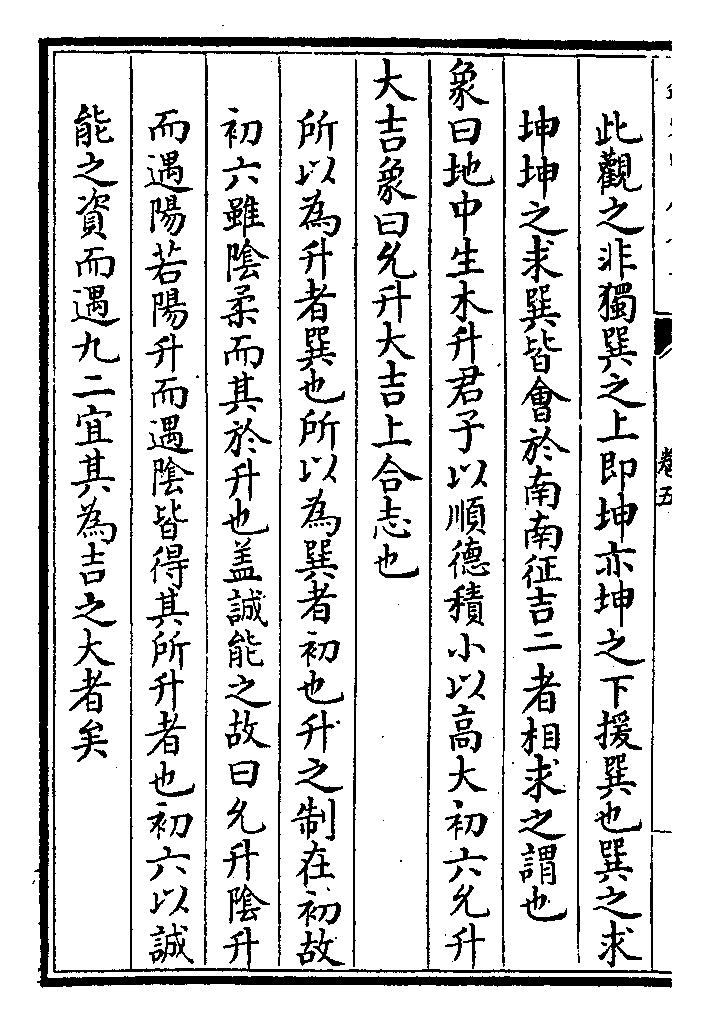 此觀之非獨巽之上即坤亦坤之下援巽也巽之求
坤坤之求巽皆會於南南征吉二者相求之謂也
象曰地中生木升君子以順德積小以高大初六允升
大吉象曰允升大吉上合志也
所以為升者巽也所以為巽者初也升之制在初故
初六雖陰柔而其於升也盖誠能之故曰允升陰升
而遇陽若陽升而遇陰皆得其所升者也初六以誠
能之資而遇九二宜其為吉之大者矣
卷五